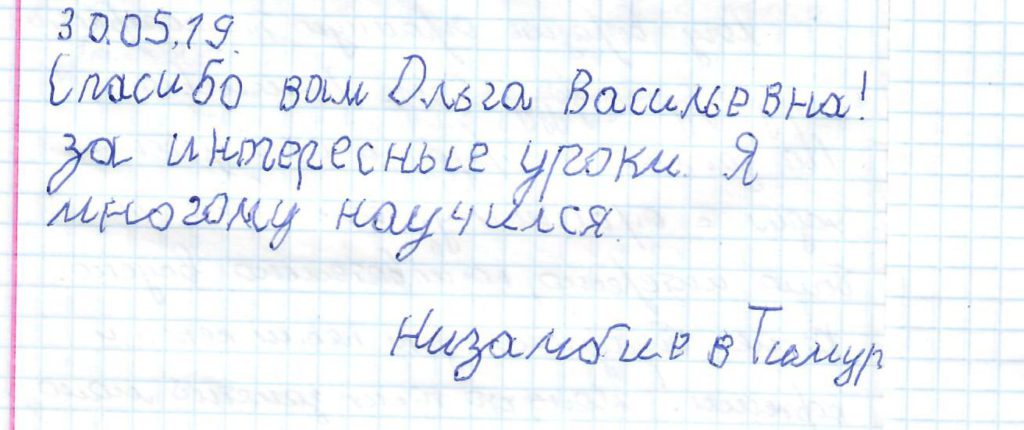 30.05.19.
Спасибо вам Ольга Васильевна!
за интересные уроки. Я
многому научился.
Тимур